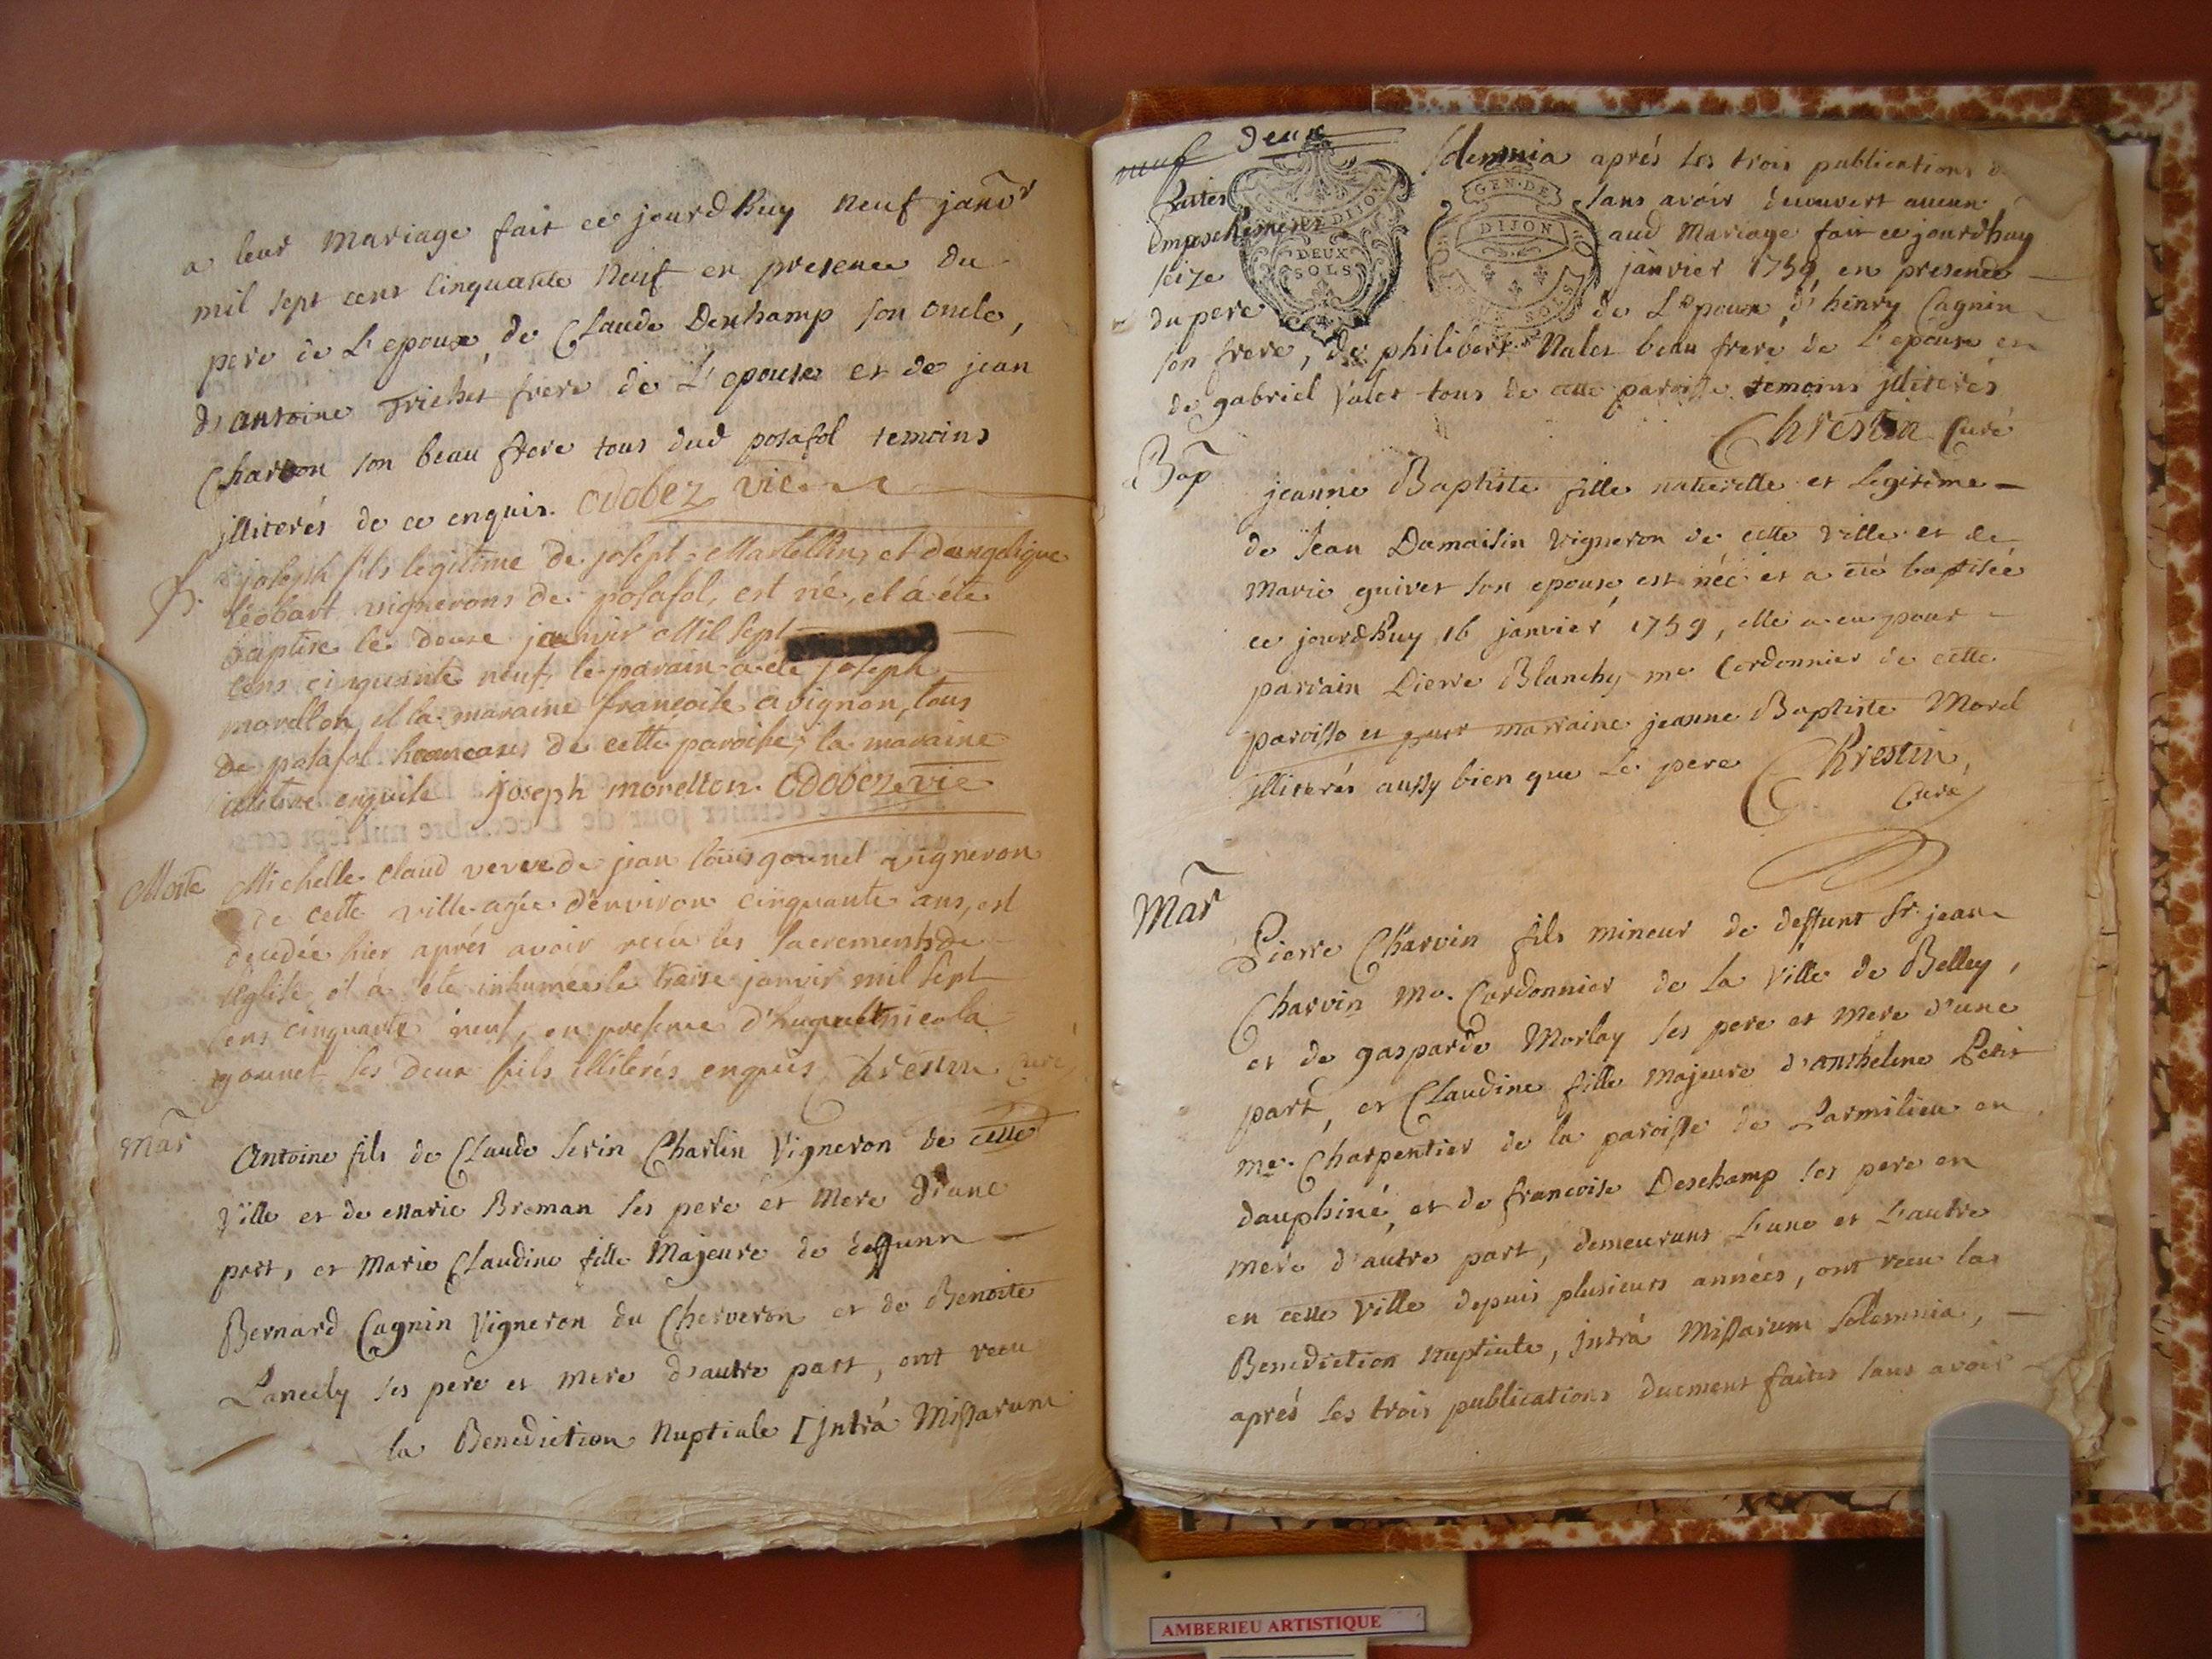 a leur Mariage fait ce jourd'huy neuf janvr
mil sept cent cinquante neuf en presence du
pere de L'epoux, de Claude Deschamp son oncle,
d'antoine Trichet frere de L'epouse et de jean
Charton son beau frere tous dud posafol temoins
jlliterés de ce enquis. Odobez vic
B. joseph fils legitime de josept Martellin, et dangelique
léobart vignerons de posafol, est né, et á été
baptise le douze janvir Mil Sept
cens cinquante neuf, le parain a été joseph
morellon et la maraine françoise avignon, tous
de posafol hameaux de cette paroisse, la maraine
illitere enquise joseph morellon. Odobez vic
Morte Michelle claud veuve de jean louis gounet vigneron
de cette ville agée d'environ cinquante ans, est
decedée hier aprés avoir receu les sacrements de
l'Eglise, et á été inhumée le treise janvir mil sept
cens cinquante neuf, en presence d'huguet nicola
gounet ses deux fils illiterés enquis Chrestin curé
Mar Antoine fils de Claude Serin Charlin Vigneron de cette
Ville et de Marie Broman ses pere et Mere d'une
part, et Marie Claudine fille Majeure de deffunt
Bernard Cagnin Vigneron du Cherveron et de Benoite
Lanecly ses pere et mere d'autre part, ont receu
la Benediction Nuptiale Jntrá Missarum
neuf Deux Solemnia aprés les trois publications
faites sans avoir decouvert aucun
Empeschement aud Mariage fait ce jourd'huy
seize janvier 1759 en presence
du pere de L'epoux, d'henry Cagnin
son frere, de philibert Nalet beau frere de L'epouse et
de gabriel Valet tous de cette paroisse temoins jlliterés
Chrestin Curé
GEN. DE DIJON
DEUX SOLS
GEN. DE
DIJON
Bap jeanne Baptiste fille naturelle et legitime
de Jean Damaisin vigneron de cette ville et de
Marie guivet son epouse, est née et a été baptisée
ce jourd'huy 16 janvier 1759, elle a eu pour
parrain Pierre Blanchy me Cordonnier de cette
paroisse et pour marraine jeanne Baptiste Morel
jlliterés aussy bien que Le pere Chrestin,
Curé
Mar Pierre Charvin fils mineur de deffunt Sr. jean
Charvin Me. Cordonnier de la Ville de Belley,
et de gasparde Morlay ses pere et mere d'une
part, et Claudine fille Majeure d'anthelme Petit
me. Charpentier de la paroisse de Parmilieu en
dauphiné, et de francoise Deschamp ses pere et
mere d'autre part, demeurans L'une et L'autre
en cette Ville depuis plusieurs années, ont receu la
Benediction Nuptiale, Jntrá Missarum Solemnia,
aprés les trois publications duement faites sans avoir
AMBERIEU ARTISTIQUE